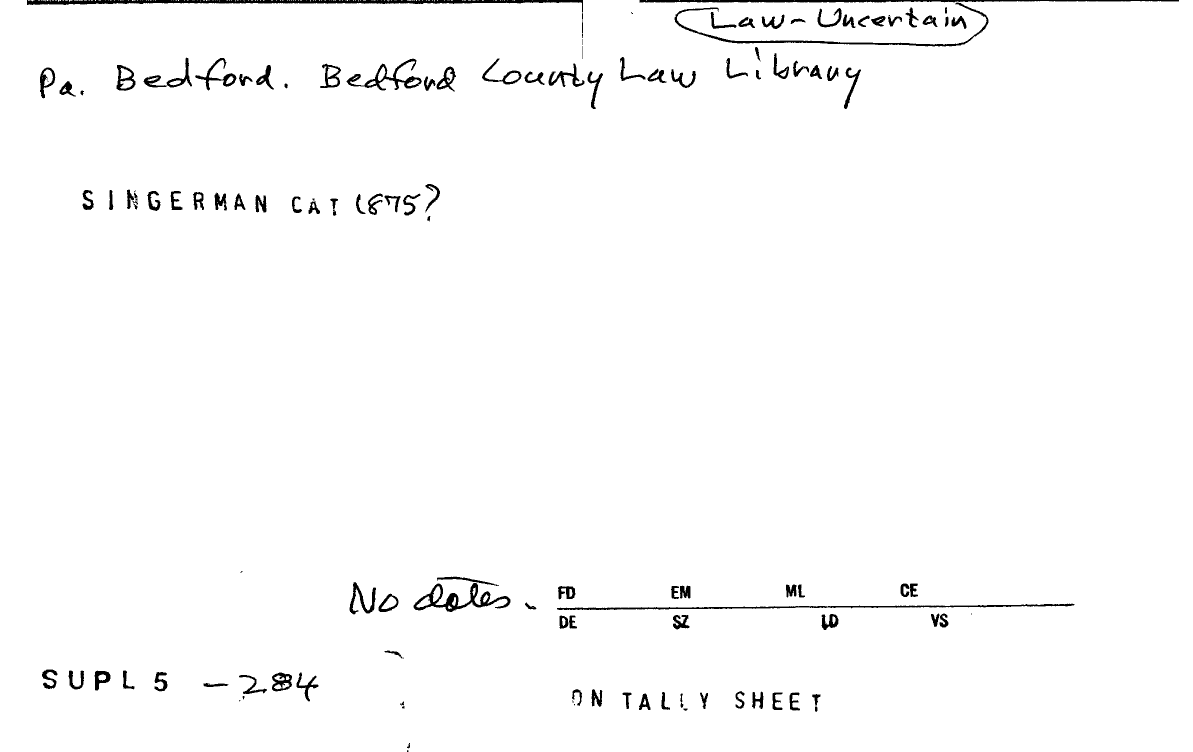 Law-Uncertain
Pa. Bedford. Bedford County Law Library
SINGERMAN CAT 1875?
No dates. FD EM ML CE
DE SZ LD VS
SUPL 5 -284
ON TALLY SHEET